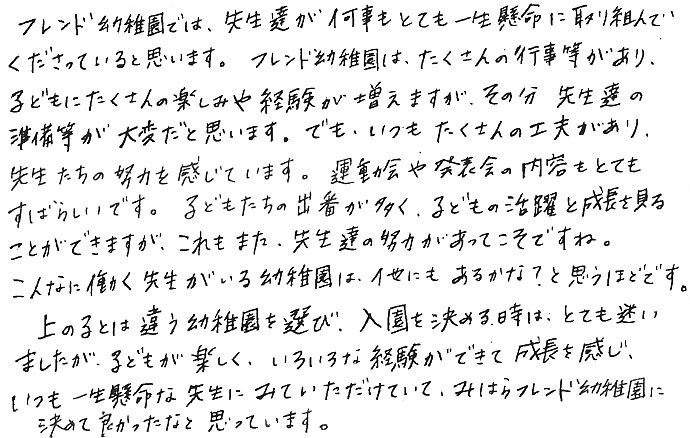 フレンド幼稚園では、先生達が何事もとても一生懸命に取り組んで
くださっていると思います。フレンド幼稚園は、たくさんの行事等があり、
子どもにたくさんの楽しみや経験が増えますが、その分先生達の
準備等が大変だと思います。でも、いつもたくさんの工夫があり、
先生たちの努力を感じています。運動会や発表会の内容もとても
すばらしいです。子どもたちの出番が多く、子どもの活躍と成長を見る
ことができますが、これもまた、先生達の努力があってこそですね。
こんなに働く先生がいる幼稚園は、他にもあるかな?と思うほどです。
上の子とは違う幼稚園を選び、入園を決める時は、とても迷い
ましたが、子どもが楽しく、いろいろな経験ができて成長を感じ、
いつも一生懸命な先生にみていただけていて、みはらフレンド幼稚園に
決めて良かったなと思っています。